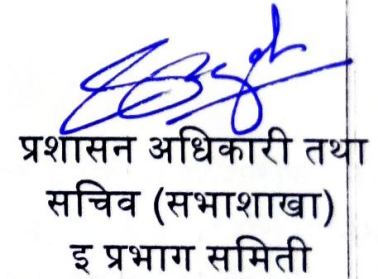 प्रशासन अधिकारी तथा
सचिव (सभाशाखा)
इ प्रभाग समिती